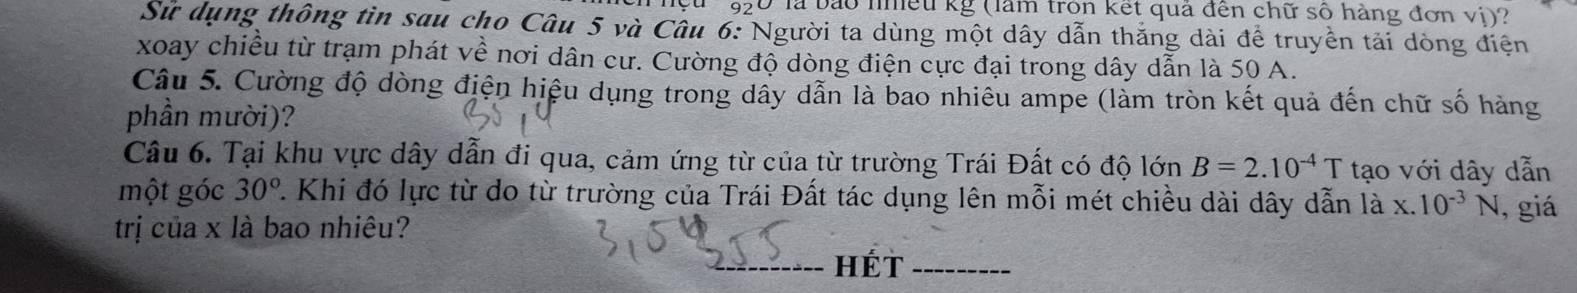 92U là bao nhiêu kg (làm tròn kết quả đến chữ số hàng đơn vị)?
Sử dụng thông tin sau cho Câu 5 và Câu 6: Người ta dùng một dây dẫn thẳng dài để truyền tải dòng điện
xoay chiều từ trạm phát về nơi dân cư. Cường độ dòng điện cực đại trong dây dẫn là 50 A.
Câu 5. Cường độ dòng điện hiệu dụng trong dây dẫn là bao nhiêu ampe (làm tròn kết quả đến chữ số hàng
phần mười)?
35,4
Câu 6. Tại khu vực dây dẫn đi qua, cảm ứng từ của từ trường Trái Đất có độ lớn B = 2.10⁻⁴ T tạo với dây dẫn
một góc 30°. Khi đó lực từ do từ trường của Trái Đất tác dụng lên mỗi mét chiều dài dây dẫn là x.10⁻³ N, giá
trị của x là bao nhiêu?
3,54
---------- HẾT ---------